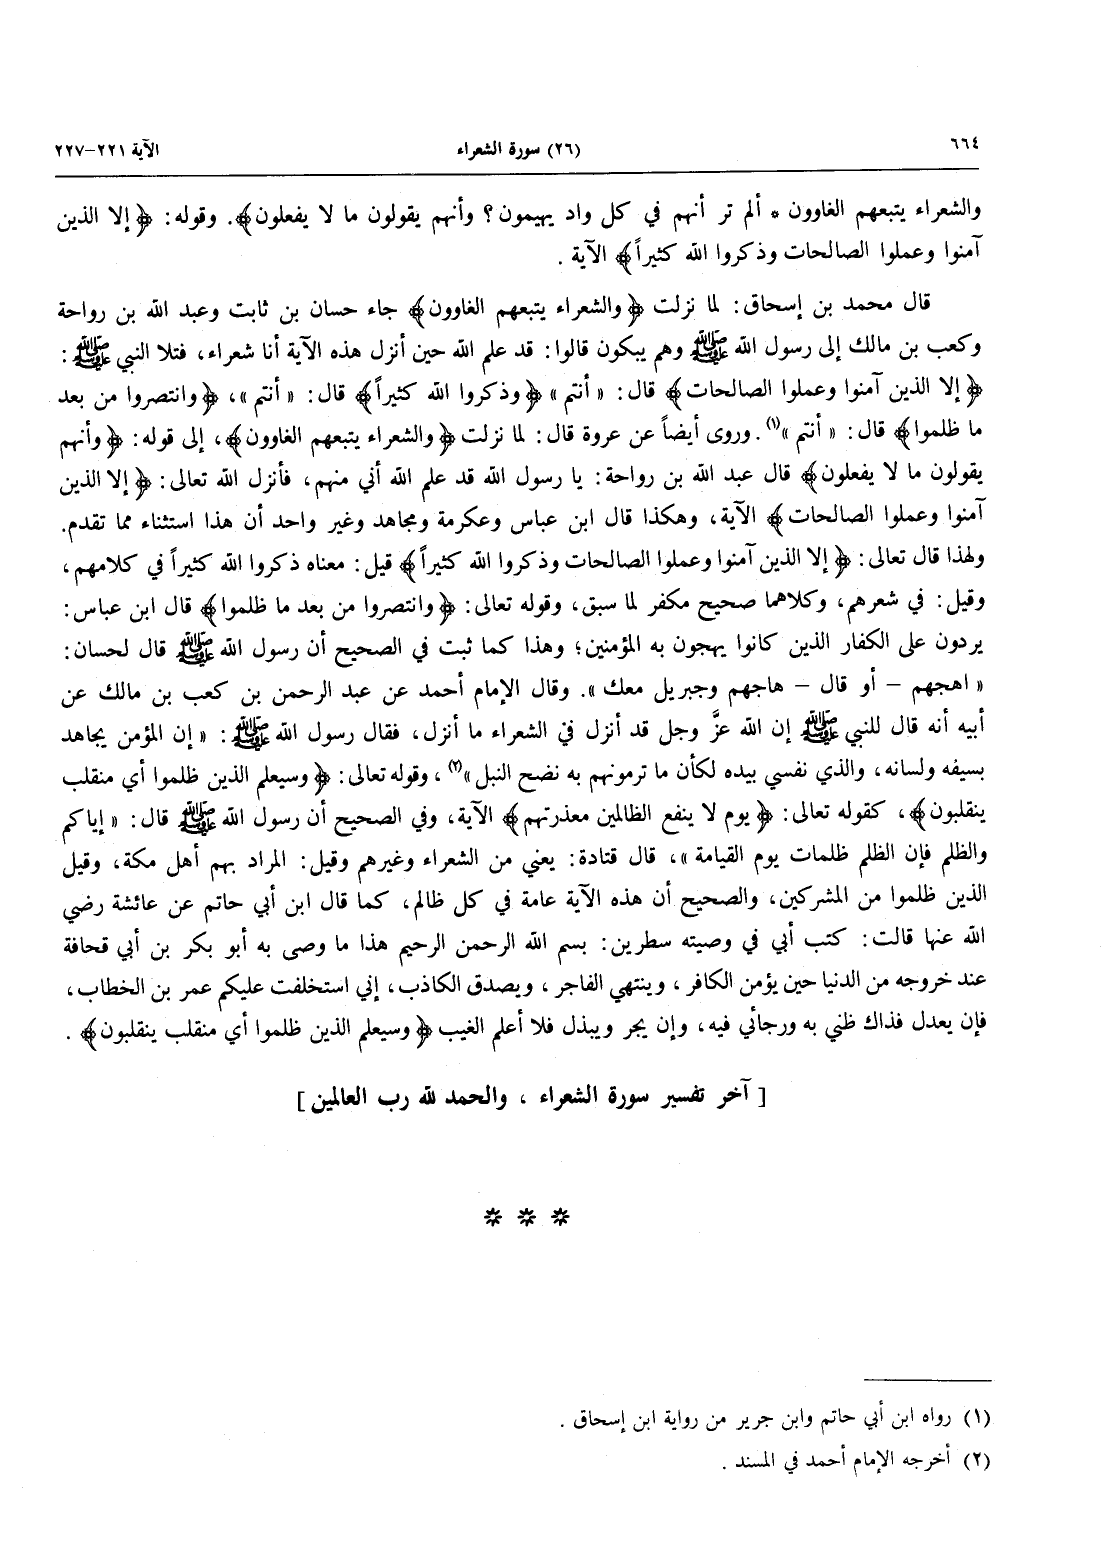 ٦٦٤ (٢٦) سورة الشعراء الآية ٢٢١-٢٢٧
والشعراء يتبعهم الغاوون * ألم تر أنهم في كل واد يهيمون؟ وأنهم يقولون ما لا يفعلون﴾. وقوله: ﴿إلا الذين
آمنوا وعملوا الصالحات وذكروا الله كثيراً﴾ الآية .
قال محمد بن إسحاق: لما نزلت ﴿والشعراء يتبعهم الغاوون﴾ جاء حسان بن ثابت وعبد الله بن رواحة
وكعب بن مالك إلى رسول الله ﷺ وهم يبكون قالوا: قد علم الله حين أنزل هذه الآية أنا شعراء، فتلا النبي ﷺ:
﴿إلا الذين آمنوا وعملوا الصالحات﴾ قال: « أنتم » ﴿وذكروا الله كثيراً﴾ قال: « أنتم »، ﴿وانتصروا من بعد
ما ظلموا﴾ قال: « أنتم »(١). وروى أيضاً عن عروة قال: لما نزلت ﴿والشعراء يتبعهم الغاوون﴾، إلى قوله: ﴿وأنهم
يقولون ما لا يفعلون﴾ قال عبد الله بن رواحة: يا رسول الله قد علم الله أني منهم، فأنزل الله تعالى: ﴿إلا الذين
آمنوا وعملوا الصالحات﴾ الآية، وهكذا قال ابن عباس وعكرمة ومجاهد وغير واحد أن هذا استثناء مما تقدم.
ولهذا قال تعالى: ﴿إلا الذين آمنوا وعملوا الصالحات وذكروا الله كثيراً﴾ قيل: معناه ذكروا الله كثيراً في كلامهم،
وقيل: في شعرهم، وكلاهما صحيح مكفر لما سبق، وقوله تعالى: ﴿وانتصروا من بعد ما ظلموا﴾ قال ابن عباس:
يردون على الكفار الذين كانوا يهجون به المؤمنين؛ وهذا كما ثبت في الصحيح أن رسول الله ﷺ قال لحسان:
« اهجهم – أو قال – هاجهم وجبريل معك ». وقال الإمام أحمد عن عبد الرحمن بن كعب بن مالك عن
أبيه أنه قال للنبي ﷺ إن الله عزَّ وجل قد أنزل في الشعراء ما أنزل، فقال رسول الله ﷺ: « إن المؤمن يجاهد
بسيفه ولسانه، والذي نفسي بيده لكأن ما ترمونهم به نضح النبل »(٢)، وقوله تعالى: ﴿وسيعلم الذين ظلموا أي منقلب
ينقلبون﴾، كقوله تعالى: ﴿يوم لا ينفع الظالمين معذرتهم﴾ الآية، وفي الصحيح أن رسول الله ﷺ قال: « إياكم
والظلم فإن الظلم ظلمات يوم القيامة »، قال قتادة: يعني من الشعراء وغيرهم وقيل: المراد بهم أهل مكة، وقيل
الذين ظلموا من المشركين، والصحيح أن هذه الآية عامة في كل ظالم، كما قال ابن أبي حاتم عن عائشة رضي
الله عنها قالت: كتب أبي في وصيته سطرين: بسم الله الرحمن الرحيم هذا ما وصى به أبو بكر بن أبي قحافة
عند خروجه من الدنيا حين يؤمن الكافر، وينتهي الفاجر، ويصدق الكاذب، إني استخلفت عليكم عمر بن الخطاب،
فإن يعدل فذاك ظني به ورجائي فيه، وإن يجر ويبذل فلا أعلم الغيب ﴿وسيعلم الذين ظلموا أي منقلب ينقلبون﴾ .
[ آخر تفسير سورة الشعراء ، والحمد لله رب العالمين ]
* * *
(١) رواه ابن أبي حاتم وابن جرير من رواية ابن إسحاق .
(٢) أخرجه الإمام أحمد في المسند .